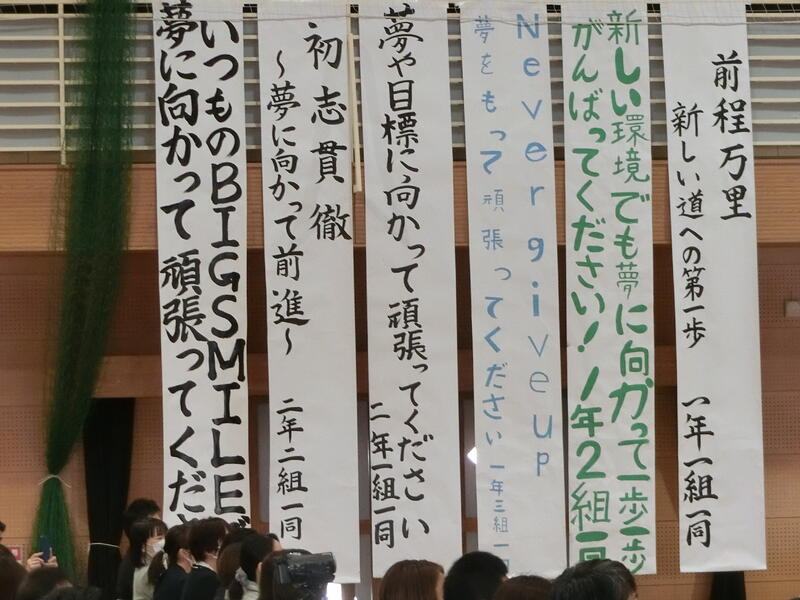 前程万里
新しい道への第一歩 一年一組一同
新しい環境でも夢に向かって一歩一歩
がんばってください! 1年2組一同
Nevergiveup
夢をもって頑張ってください 一年三組一
夢や目標に向かって頑張ってください
二年一組一同
初志貫徹
〜夢に向かって前進〜 二年二組一同
いつものBIGSMILEで
夢に向かって頑張ってくださ